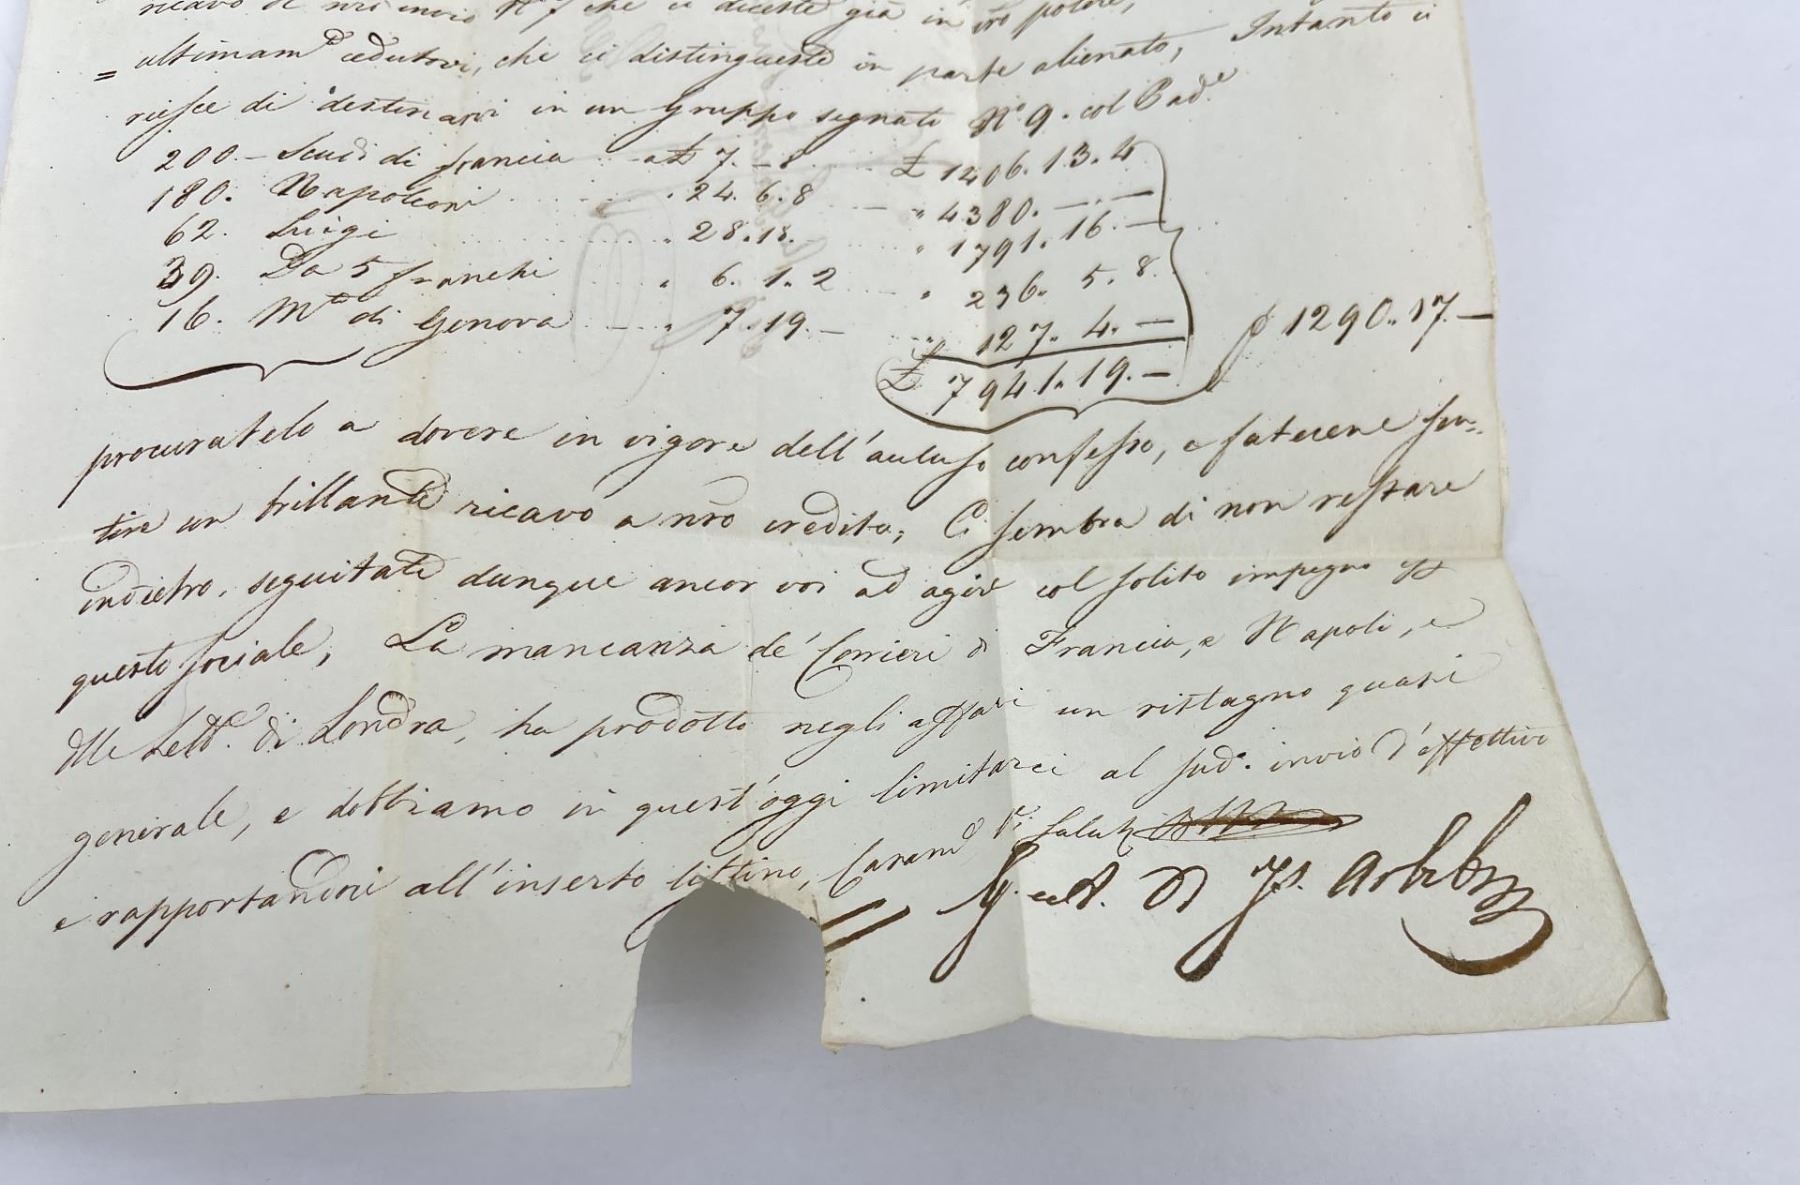 ricavo di nro invio N° 7 che ci diceste già in vro potere,
= ultimamte cedutovi, che ci distingueste in parte alienato, Intanto ci
riesce di destinarvi in un Gruppo segnato N° 9. col Padne
200. - Scudi di francia ... a £ 7. - 8 ... £ 1406.13.4
180. Napoleoni ... " 24.6.8 ... " 4380. - . -
62. Luigi ... " 28.18. ... " 1791.16. -
39. Da 5 franchi ... " 6.1.2 ... " 236.5.8.
16. Mte di Genova ... " 7.19. - ... " 127.4. -
£ 7941.19. - 1290.17. -
procuratelo a dovere in vigore dell'accluso confesso, e fatecene sen=
tire un brillante ricavo a nro credito; Ci sembra di non restare
indietro, seguitate dunque ancor voi ad agire col solito impegno
questo sociale; La mancanza de' Corrieri di Francia, e Napoli, e
delle Lettre di Londra, ha prodotto negli affari un ristagno quasi
generale, e dobbiamo in quest'oggi limitarci al sudo. invio d'effettivo
e rapportandoci all'inserto listino, Caramte Vi salutiamo
= G. di Js.